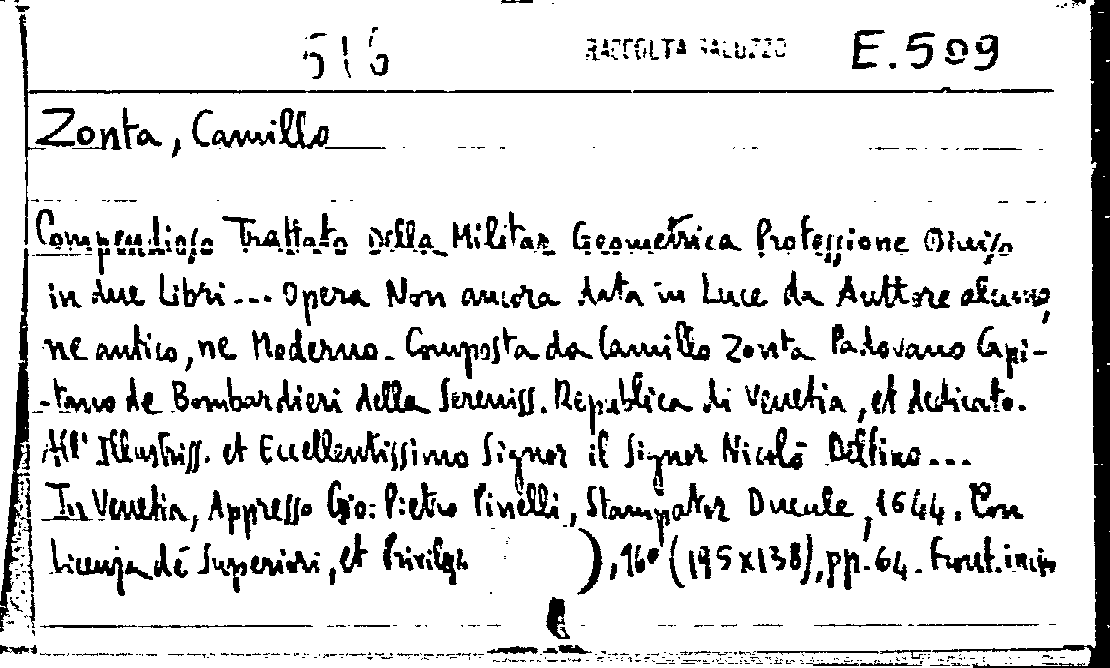 516 RACCOLTA SALUZZO E.509
Zonta, Camillo
Compendioso Trattato Della Militar Geometrica Professione Diviso
in due Libri... Opera Non ancora data in Luce da Auttore alcuno,
ne antico, ne Moderno. Composta da Camillo Zonta Padovano Capi-
-tano de Bombardieri della Sereniss. Republica di Venetia, et dedicato.
All' Illustriss. et Eccellentissimo Signor il Signor Nicolò Delfino...
In Venetia, Appresso Gio: Pietro Pinelli, Stampator Ducale, 1644. Con
Licenza de Superiori, et Privileg. ), (195x138), pp. 64. Front. incis